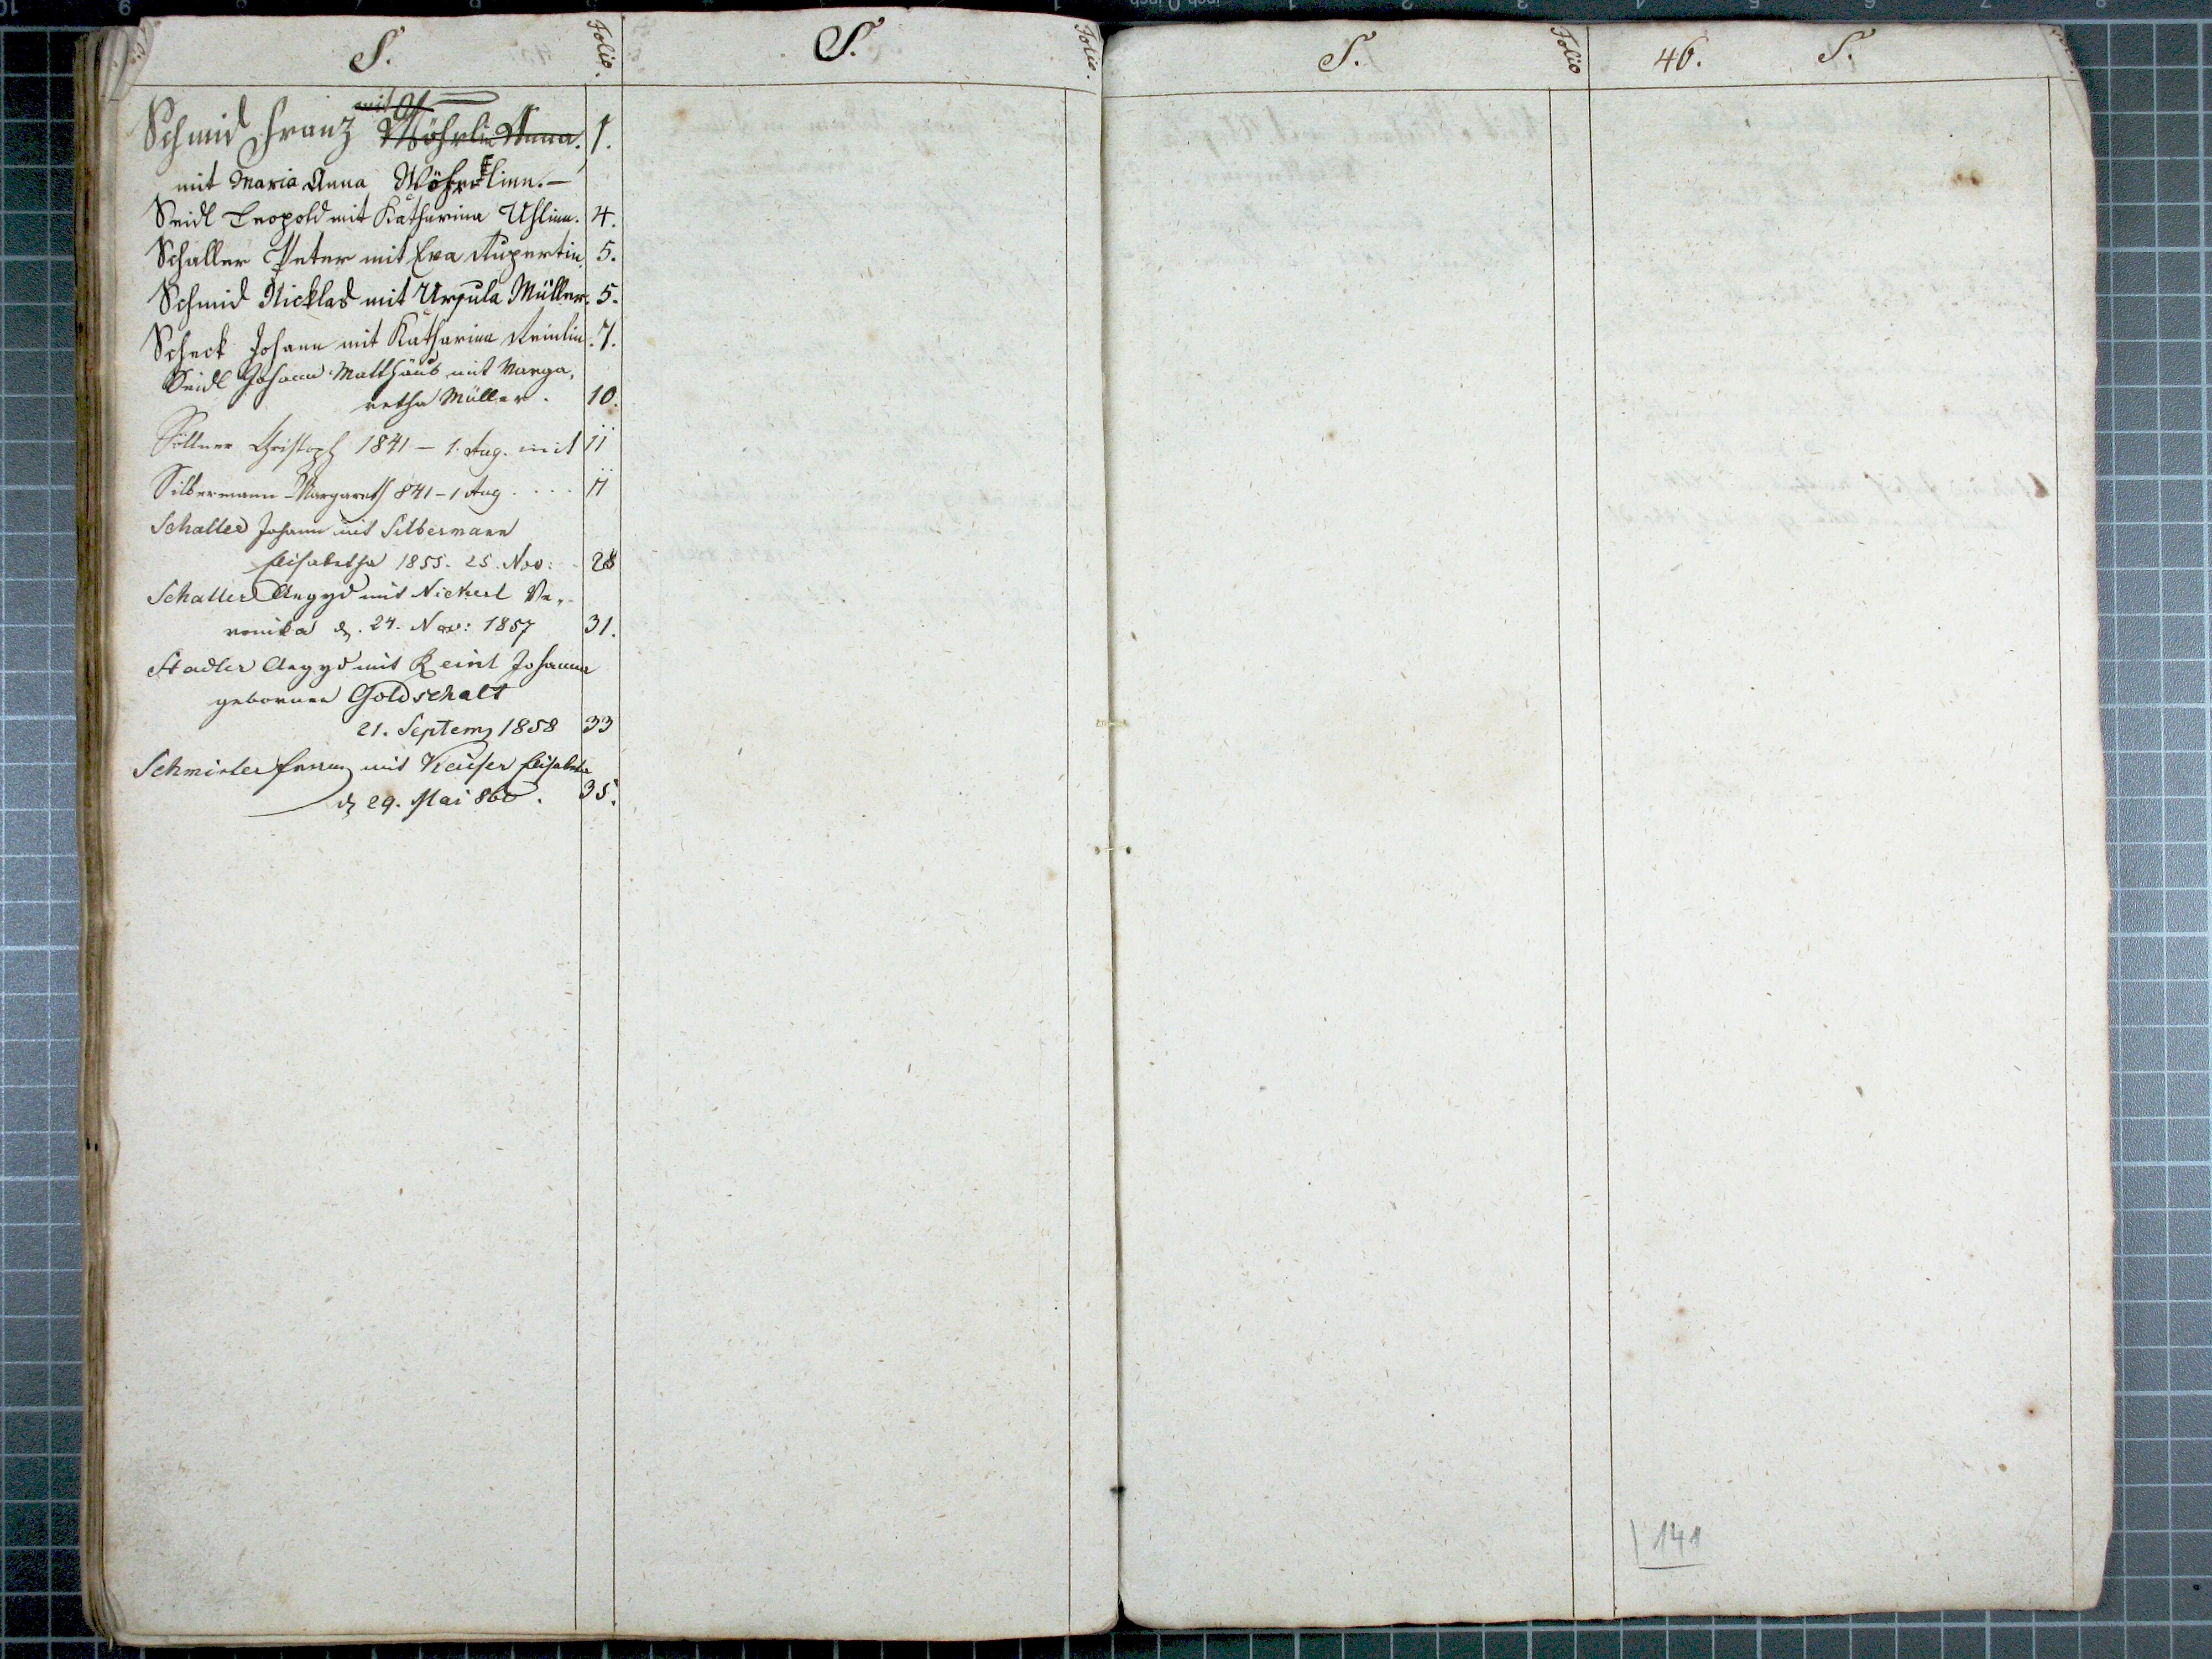 S.
Folio.
Schmid Franz mit Möhrlin Anna. 1.
mit Maria Anna Möhrlinn. —
Seidl Leopold mit Katharina Uhlinn. 4.
Schaller Peter mit Eva Rupertin. 5.
Schmid Nicklas mit Ursula Müller. 5.
Scheck Johann mit Katharina Reinlin. 7.
Seidl Johann Matthäus mit Marga,
retha Müller. 10.
Söllner Christoph 1841 – 1. Aug. mit 11
Silbermann Margareth 841 – 1 Aug . . . . 11
Schaller Johann mit Silbermann
Elisabetha 1855. 25. Nov: 28
Schaller Aegyd mit Nickerl Ve,,
ronika d. 24. Nov: 1857 31.
Stadler Aegyd mit Reinl Johanna
geborene Goldschalt
21. Septem 1858 33
Schmirler mit Keiser Elisabetha
d. 29. Mai 860. 35.
S.
Folio.
S.
Folio
46.
S.
141